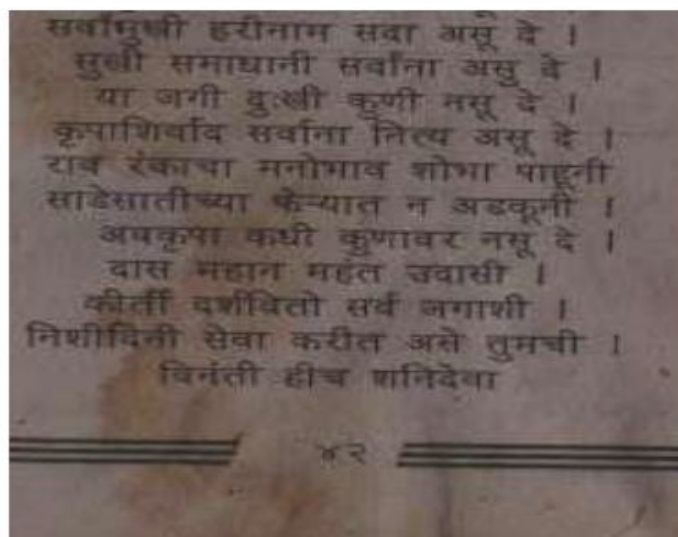 सर्वांमुखी हरीनाम सदा असू दे ।
सुखी समाधानी सर्वांना असु दे ।
या जगी दुःखी कुणी नसू दे ।
कृपाशिर्वाद सर्वाना नित्य असू दे ।
राव रंकाचा मनोभाव शोभा पाहूनी
साडेसातीच्या फेऱ्यात न अडकूनी ।
अवकृपा कधी कुणावर नसू दे ।
दास महान महंत उदासी ।
कीर्ती दर्शवितो सर्व जगाशी ।
निशीदिनी सेवा करीत असे तुमची ।
विनंती हीच शनिदेवा
४२